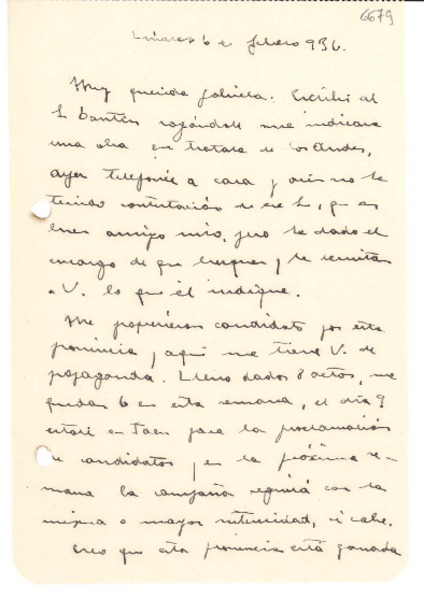 6679
Linares 6 de febrero 936.
Muy querida Gabriela: Escribí al
Sr. Dantín rogándole me indicara
una obra que tratara de los Andes,
ayer telefoneé a casa y aún no he
tenido contestación de ese Sr, que es
buen amigo mío, pero he dado el
encargo de que busquen y le remitan
a V. lo que él indique.
Me propusieron candidato por esta
provincia y aquí me tiene V. de
propaganda. Llevo dados 8 actos, me
quedan 6 en esta semana, el día 9
estaré en Jaén para la proclamación
de candidatos y en la próxima se-
mana la campaña seguirá con la
misma o mayor intensidad, si cabe.
Creo que esta provincia está ganada